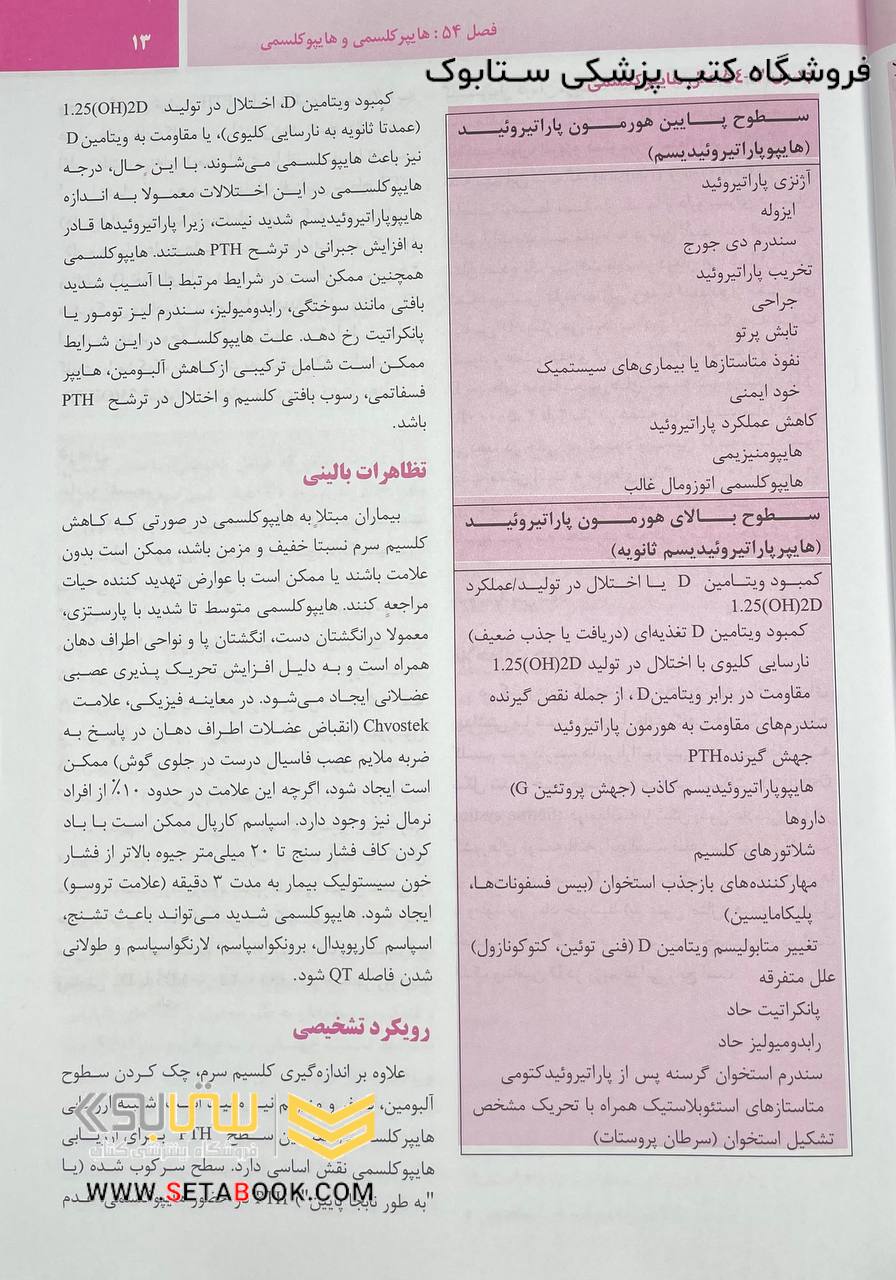 فصل ۵۴: هایپرکلسمی و هایپوکلسمی
۱۳
فروشگاه کتب پزشکی ستابوک
هایپوکلسمی
سطوح پایین هورمون پاراتیروئید
(هایپوپاراتیروئیدیسم)
آژنزی پاراتیروئید
ایزوله
سندرم دی جورج
تخریب پاراتیروئید
جراحی
تابش پرتو
نفوذ متاستازها یا بیماری‌های سیستمیک
خود ایمنی
کاهش عملکرد پاراتیروئید
هایپومنیزیمی
هایپوکلسمی اتوزومال غالب
سطوح بالای هورمون پاراتیروئید
(هایپرپاراتیروئیدیسم ثانویه)
کمبود ویتامین D یا اختلال در تولید/عملکرد
1.25(OH)2D
کمبود ویتامین D تغذیه‌ای (دریافت یا جذب ضعیف)
نارسایی کلیوی با اختلال در تولید 1.25(OH)2D
مقاومت در برابر ویتامینD ، از جمله نقص گیرنده
سندرم‌های مقاومت به هورمون پاراتیروئید
جهش گیرندهPTH
هایپوپاراتیروئیدیسم کاذب (جهش پروتئین G)
داروها
شلاتورهای کلسیم
مهارکننده‌های بازجذب استخوان (بیس فسفونات‌ها،
پلیکامایسین)
تغییر متابولیسم ویتامین D (فنی توئین، کتوکونازول)
علل متفرقه
پانکراتیت حاد
رابدومیولیز حاد
سندرم استخوان گرسنه پس از پاراتیروئیدکتومی
متاستازهای استئوبلاستیک همراه با تحریک مشخص
تشکیل استخوان (سرطان پروستات)
کمبود ویتامین D، اختلال در تولید 1.25(OH)2D
(عمدتا ثانویه به نارسایی کلیوی)، یا مقاومت به ویتامین D
نیز باعث هایپوکلسمی می‌شوند. با این حال، درجه
هایپوکلسمی در این اختلالات معمولا به اندازه
هایپوپاراتیروئیدیسم شدید نیست، زیرا پاراتیروئیدها قادر
به افزایش جبرانی در ترشح PTH هستند. هایپوکلسمی
همچنین ممکن است در شرایط مرتبط با آسیب شدید
بافتی مانند سوختگی، رابدومیولیز، سندرم لیز تومور یا
پانکراتیت رخ دهد. علت هایپوکلسمی در این شرایط
ممکن است شامل ترکیبی از کاهش آلبومین، هایپر
فسفاتمی، رسوب بافتی کلسیم و اختلال در ترشح PTH
باشد.
تظاهرات بالینی
بیماران مبتلا به هایپوکلسمی در صورتی که کاهش
کلسیم سرم نسبتا خفیف و مزمن باشد، ممکن است بدون
علامت باشند یا ممکن است با عوارض تهدید کننده حیات
مراجعه کنند. هایپوکلسمی متوسط تا شدید با پارستزی،
معمولا درانگشتان دست، انگشتان پا و نواحی اطراف دهان
همراه است و به دلیل افزایش تحریک پذیری عصبی
عضلانی ایجاد می‌شود. در معاینه فیزیکی، علامت
Chvostek (انقباض عضلات اطراف دهان در پاسخ به
ضربه ملایم عصب فاسیال درست در جلوی گوش) ممکن
است ایجاد شود، اگرچه این علامت در حدود ۱۰٪ از افراد
نرمال نیز وجود دارد. اسپاسم کارپال ممکن است با باد
کردن کاف فشار سنج تا ۲۰ میلی‌متر جیوه بالاتر از فشار
خون سیستولیک بیمار به مدت ۳ دقیقه (علامت تروسو)
ایجاد شود. هایپوکلسمی شدید می‌تواند باعث تشنج،
اسپاسم کارپوپدال، برونکواسپاسم، لارنگواسپاسم و طولانی
شدن فاصله QT شود.
رویکرد تشخیصی
علاوه بر اندازه‌گیری کلسیم سرم، چک کردن سطوح
آلبومین،
هایپرکلسمی سطح PTH برای ارزیابی
هایپوکلسمی نقش اساسی دارد. سطح سرکوب شده (یا
"به طور نابجا پایین") PTH در حضور هایپوکلسمی، عدم
ستابوک
فروشگاه پزشکی کتاب
WWW.SETABOOK.COM